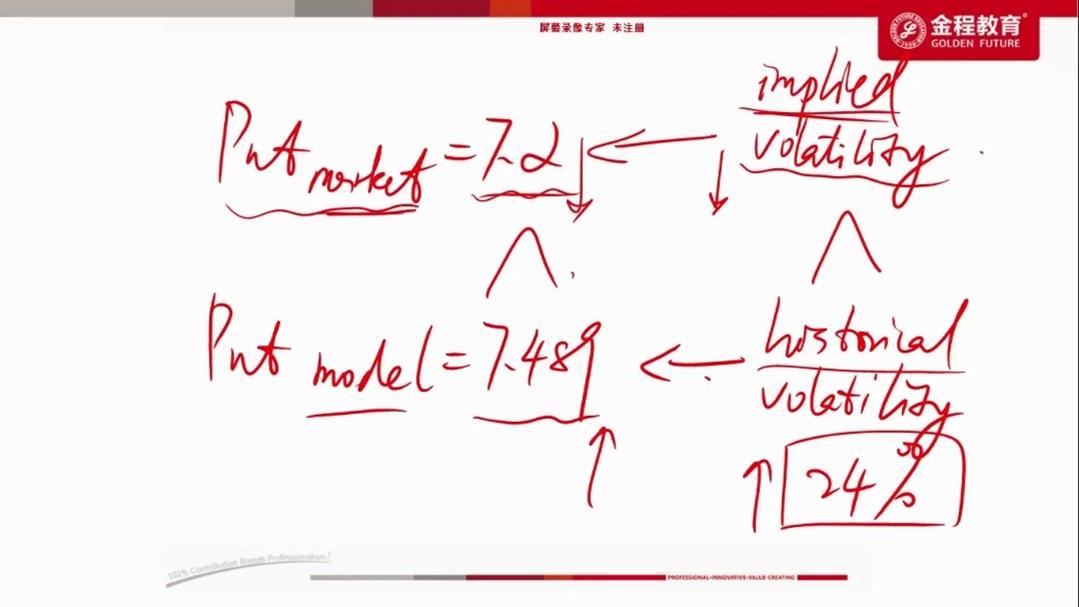 屏幕录像专家 未注册
金程教育®
GOLDEN FUTURE
implied
volatility
Put market = 7.2 ←
∧ ∧
historical
Put model = 7.489 ←
volatility
24%
101% Contribution Breeds Professionalism!
PROFESSIONAL·INNOVATIVE·VALUE-CREATING